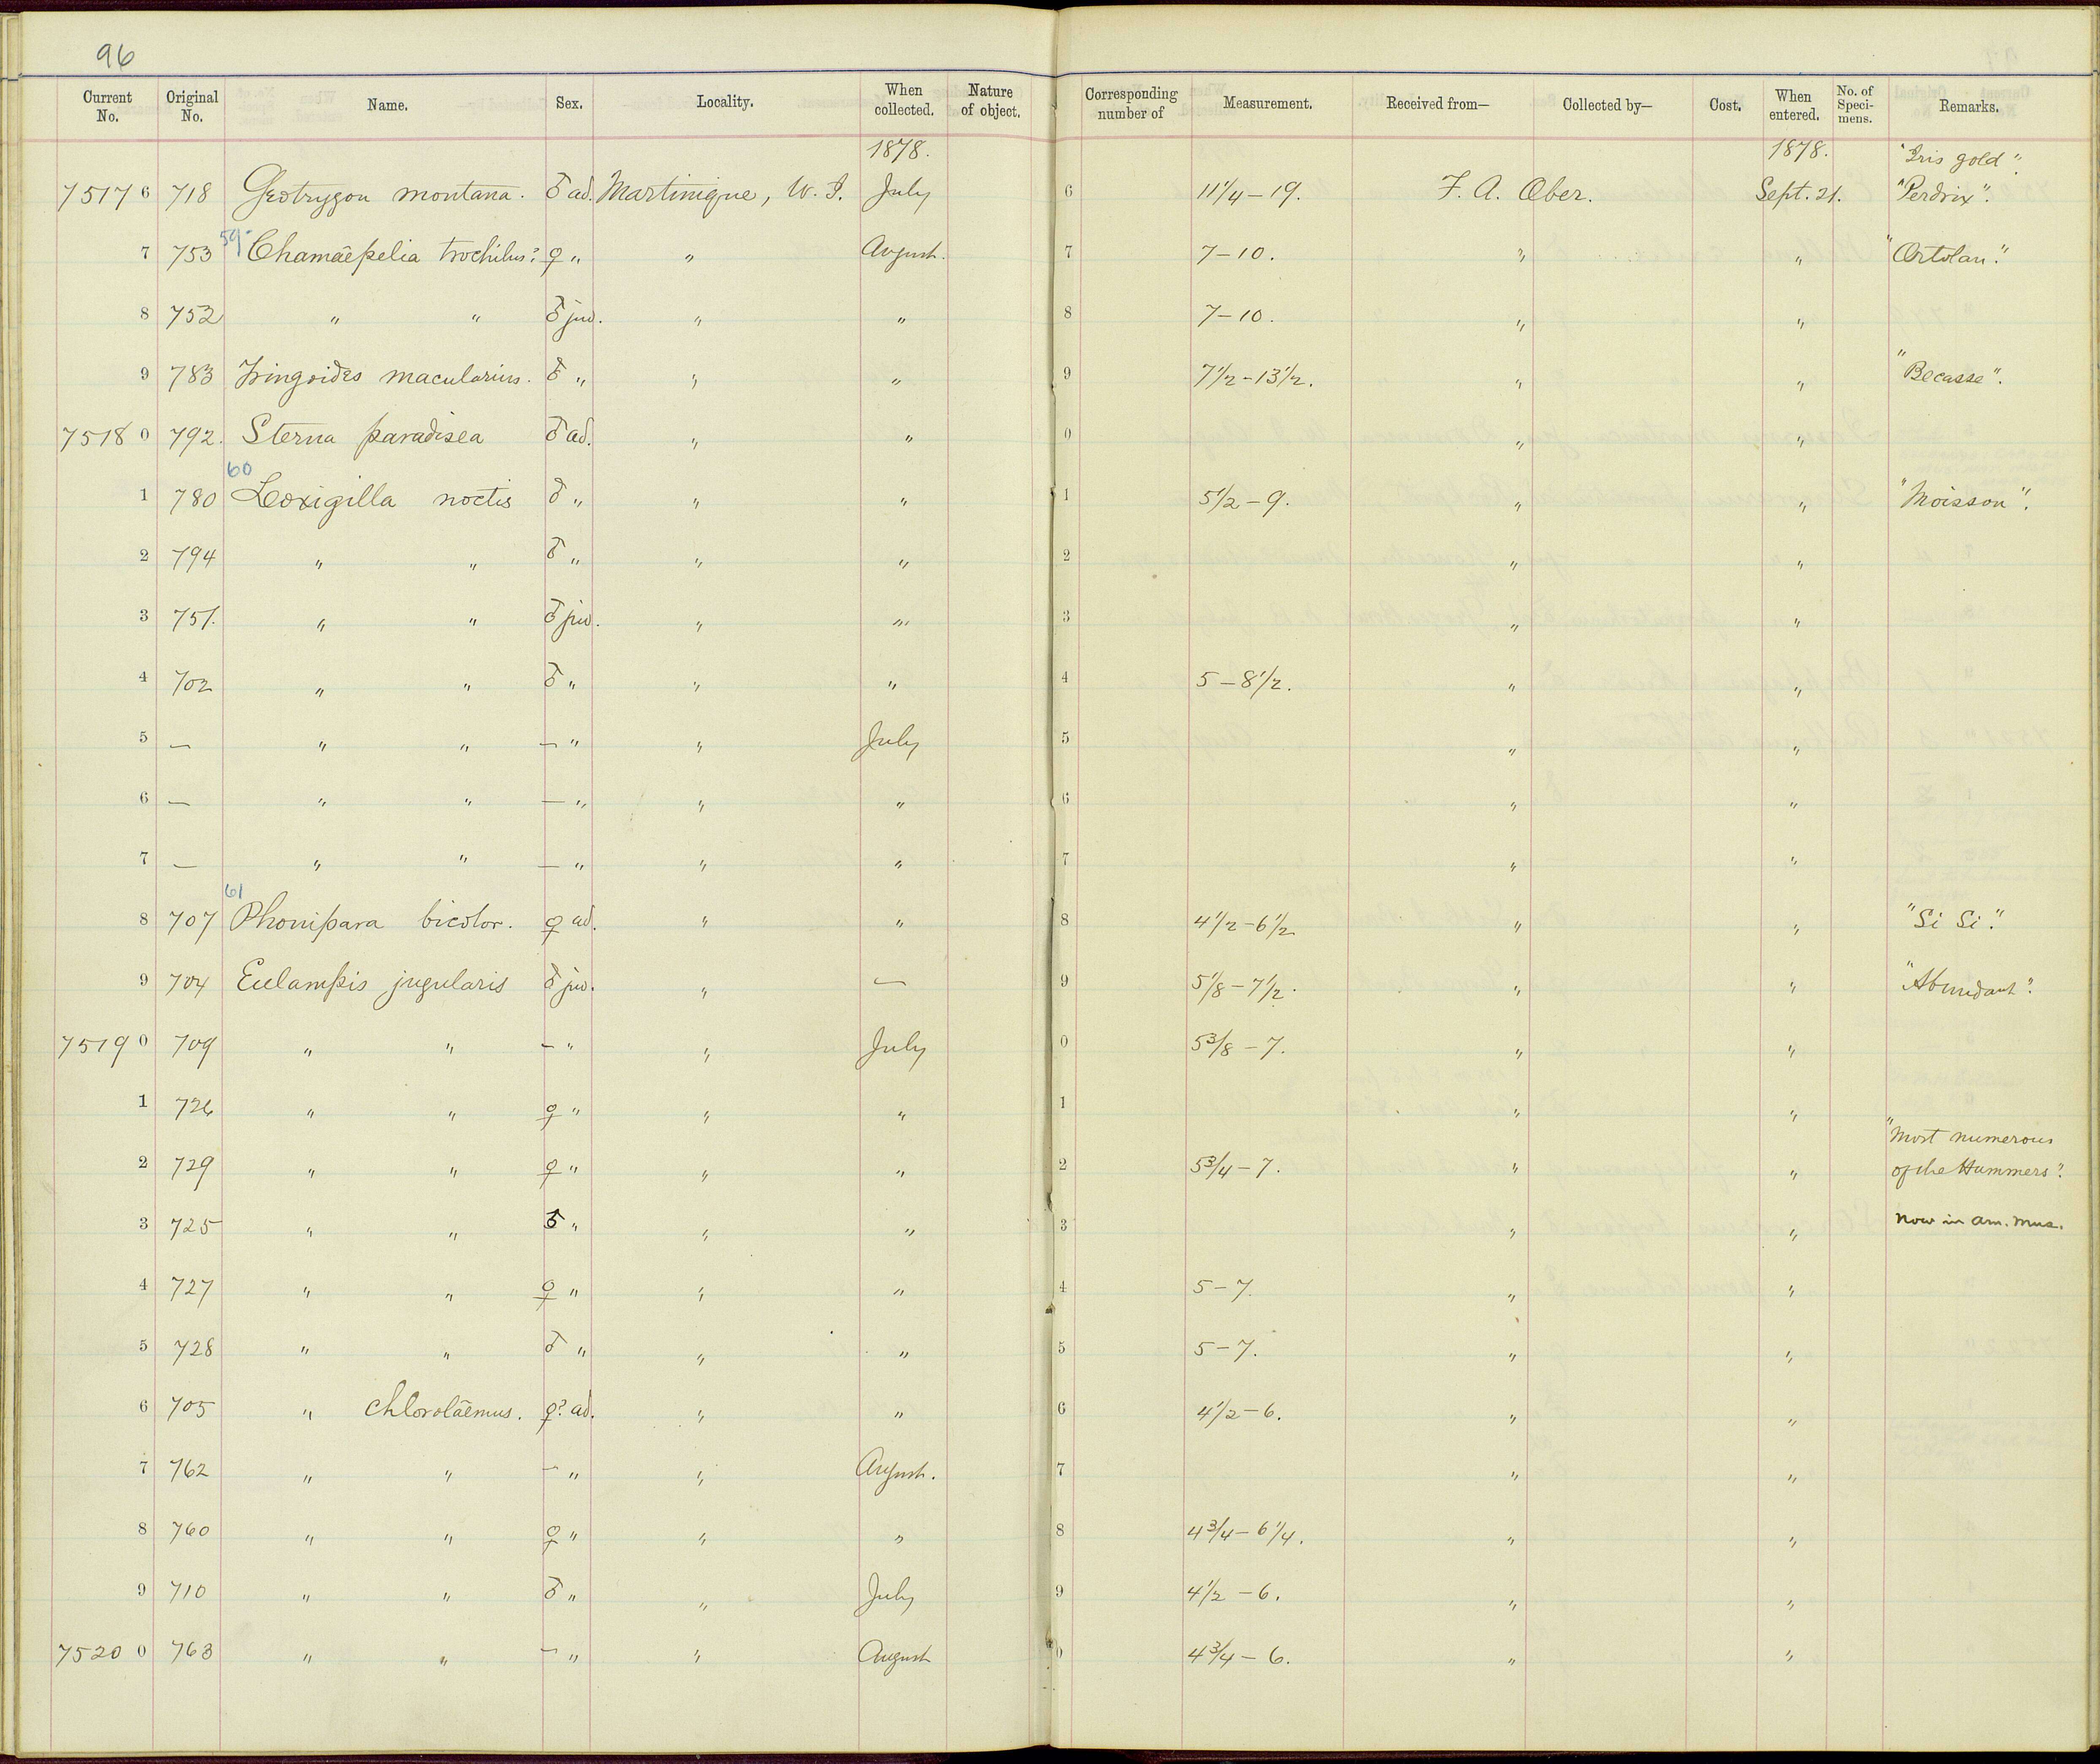 96
Current No. Original No. Name. Sex. Locality. When collected. Nature of object. Corresponding number of Measurement. Received from— Collected by— Cost. When entered. No. of Specimens. Remarks.
1878. 1878. "Iris gold".
7517 6 718 Geotrygon montana. ♂ ad. Martinique, W. I. July 6 11 1/4 – 19. F. A. Ober. Sept. 21. "Perdrix".
59
7 753 Chamaepelia trochilus? ♀ " " August. 7 7 – 10. " " "Ortolan."
8 752 " " ♂ juv. " " 8 7 – 10. " "
9 783 Tringoides macularius. ♂ " " " 9 7 1/2 – 13 1/2. " " "Becasse".
7518 0 792. Sterna paradisea ♂ ad. " " 0 " "
60
1 780 Loxigilla noctis ♂ " " " 1 5 1/2 – 9. " " "Moisson".
2 794 " " ♂ " " " 2 " "
3 751. " " ♂ juv. " " 3 " "
4 702 " " ♂ " " " 4 5 – 8 1/2. " "
5 — " " — " " July 5 " "
6 — " " — " " " 6 " "
7 — " " — " " " 7 " "
61
8 707 Phonipara bicolor. ♀ ad. " " 8 4 1/2 – 6 1/2 " " "Si Si."
9 704 Eulampis jugularis ♂ juv. " — 9 5 1/8 – 7 1/2. " " "Abundant".
7519 0 709 " " — " " July 0 5 3/8 – 7. " "
1 726 " " ♀ " " " 1 " "
"Most numerous
2 729 " " ♀ " " " 2 5 3/4 – 7. " " of the Hummers".
3 725 " " ♂ " " " 3 " " Now in Am. Mus.
4 727 " " ♀ " " " 4 5 – 7. " "
5 728 " " ♂ " " " 5 5 – 7. " "
6 705 " chlorolaemus. ♀? ad. " " 6 4 1/2 – 6. " "
7 762 " " — " " August. 7 " "
8 760 " " ♀ " " " 8 4 3/4 – 6 1/4. " "
9 710 " " ♂ " " July 9 4 1/2 – 6. " "
7520 0 763 " " — " " August 0 4 3/4 – 6. " "